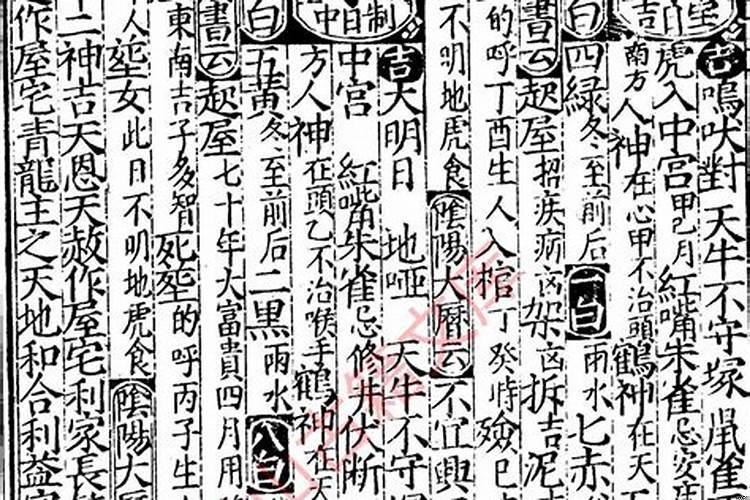 吉鳴吠對 天牛不守塚
虎入中宮甲己月紅嘴朱雀忌安
南方人神在心甲不治頭鶴神在天
白四綠冬至前后一白雨水七赤
書云起屋招疾病凶架凶拆吉泥
的呼丁酉生人入棺丁癸時殮巳
不明地虎食陰陽大曆云不宜興
吉大明日 地啞 天牛不守
中宮 紅嘴朱雀忌修井伏斷
方人神在頭乙不治喉手鶴神在天
白五黃冬至前后二黑雨水八白
書云起屋七十年大富貴四月用
東南吉子多智死塟的呼丙子生
人塟女此日不明地虎食陰陽大
二神吉天恩天赦作屋宅利家長
作屋宅青龍主之天地和合利益